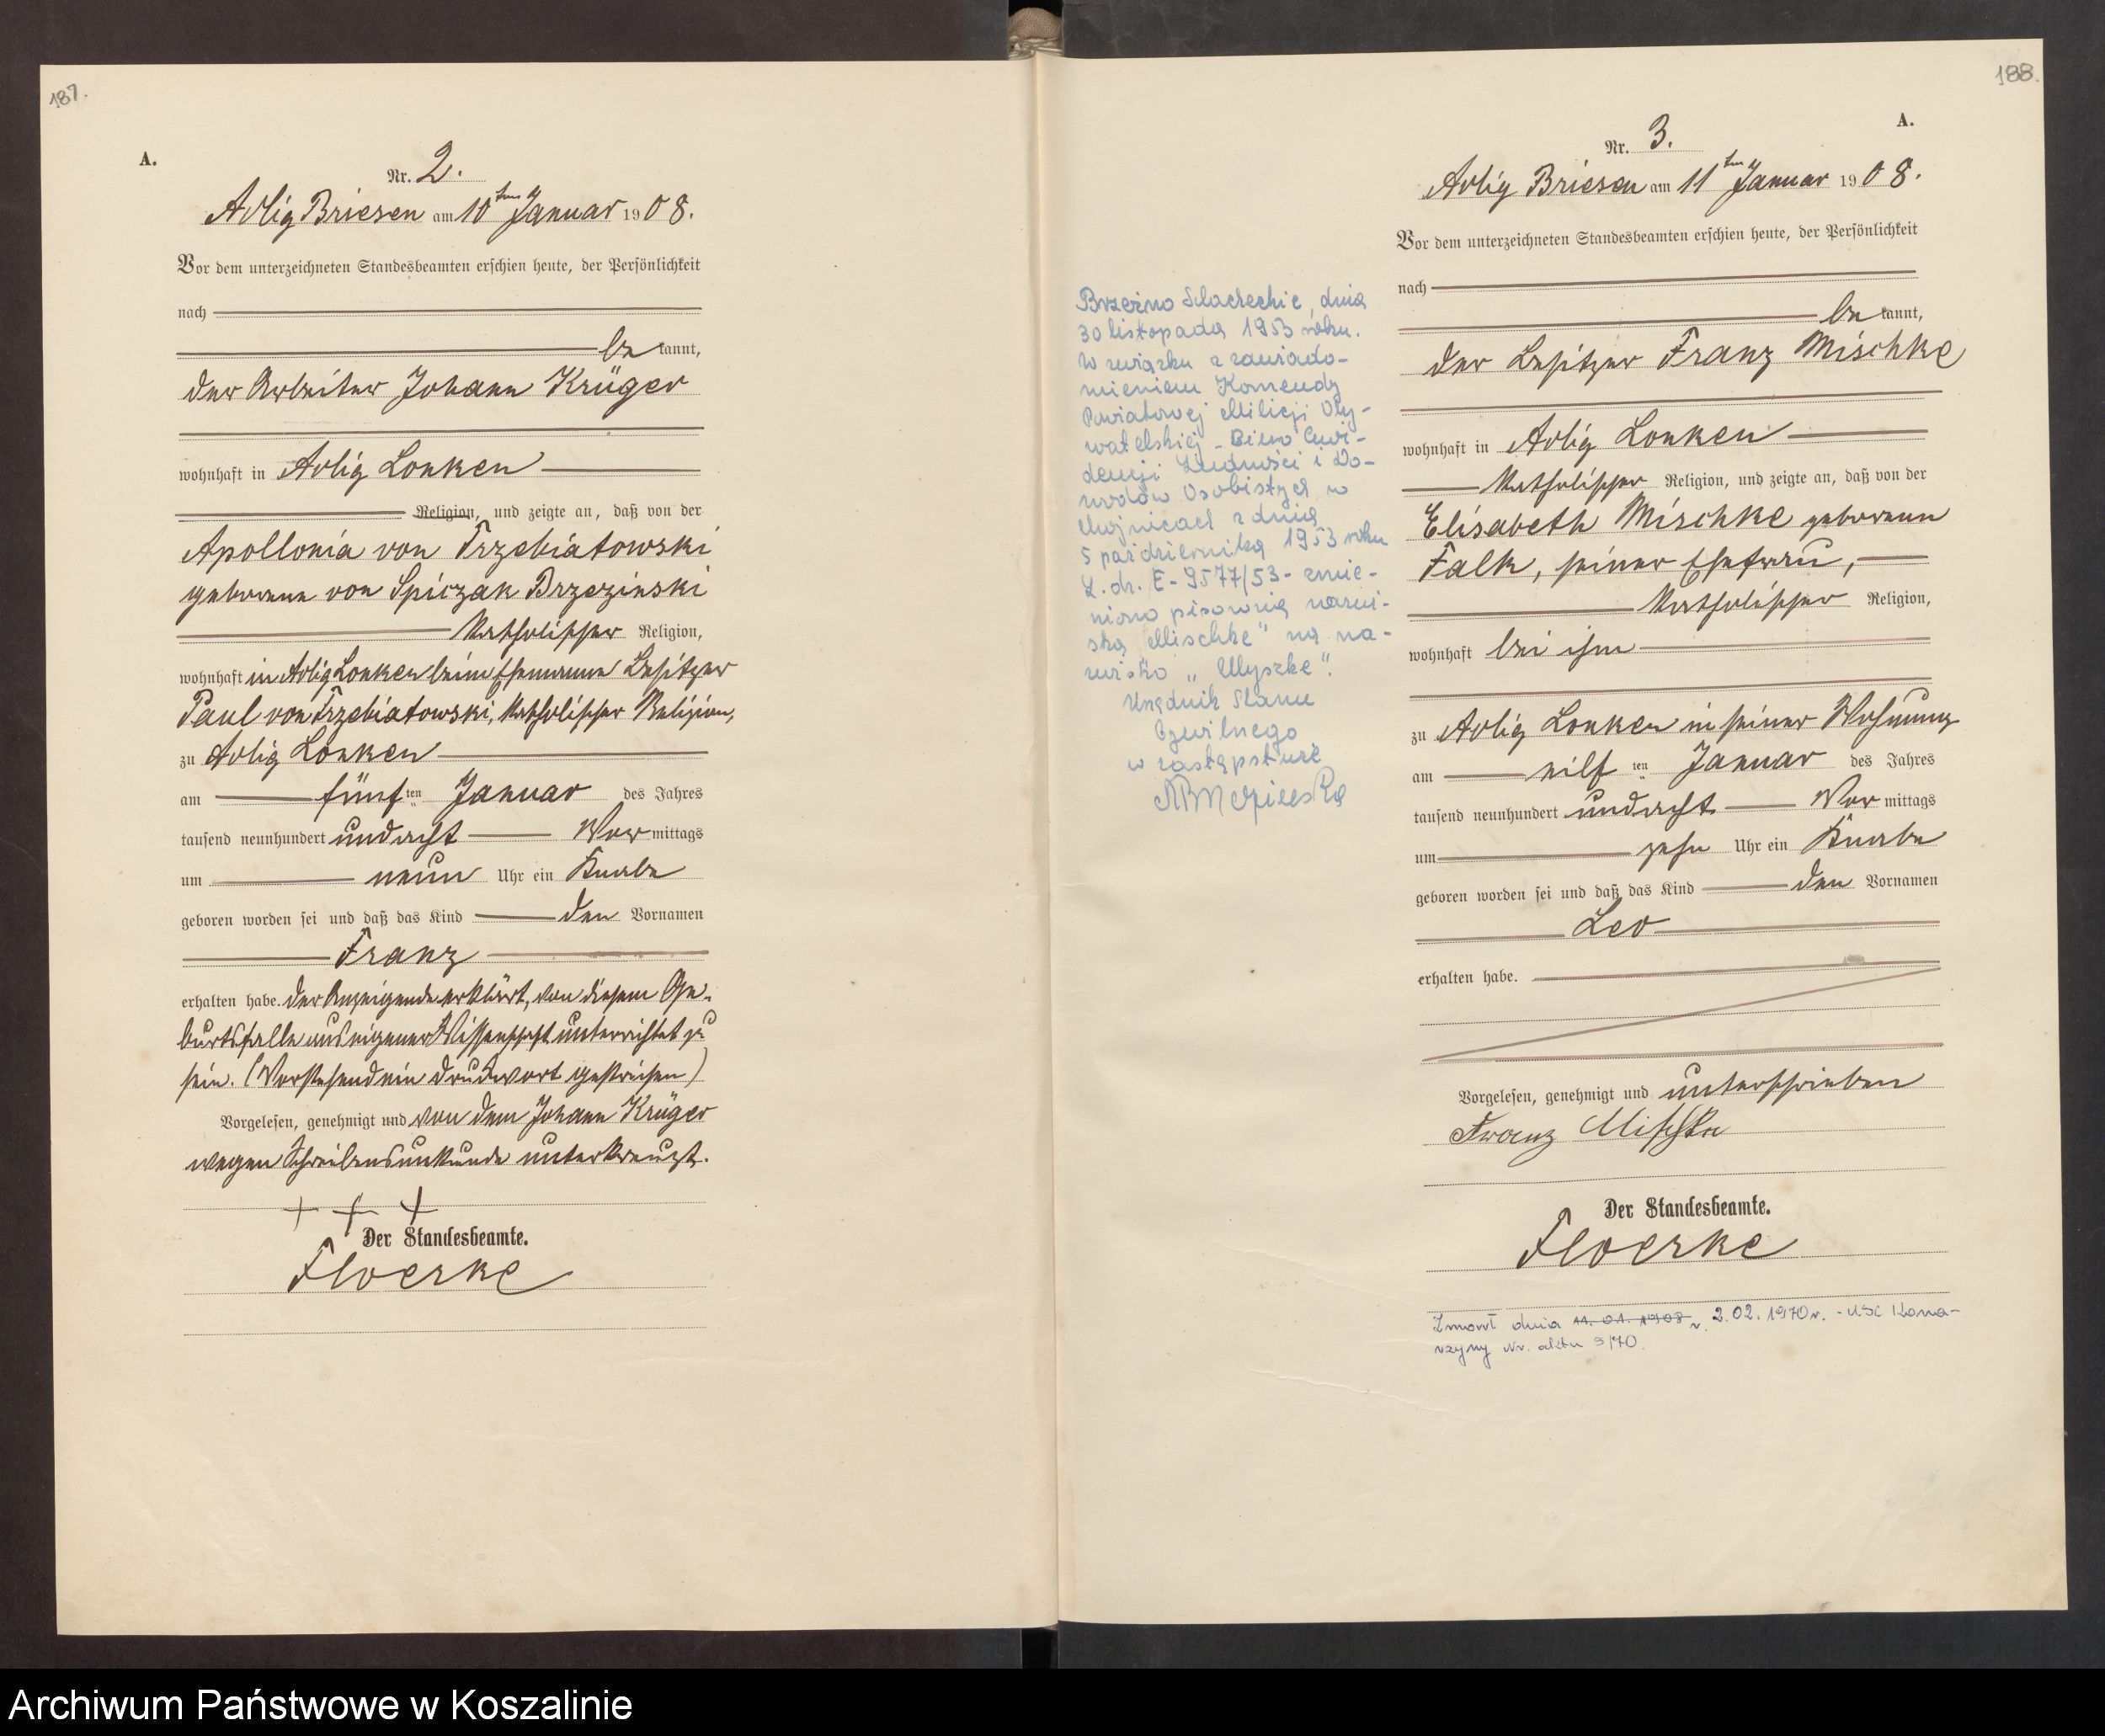 187.
A.
Nr. 2.
Adlig Briesen am 10ten Januar 1908.
Vor dem unterzeichneten Standesbeamten erschien heute, der Persönlichkeit
nach
bekannt,
der Arbeiter Johann Krüger
wohnhaft in Adlig Lonken
Religion, und zeigte an, daß von der
Apollonia von Trzebiatowski
geborene von Spiczak Brzezinski
katholischer Religion,
wohnhaft in Adlig Lonken beim Ehemanne Besitzer
Paul von Trzebiatowski, katholischer Religion,
zu Adlig Lonken
am fünften Januar des Jahres
tausend neunhundert undacht Vormittags
um neun Uhr ein Knabe
geboren worden sei und daß das Kind den Vornamen
Franz
erhalten habe. Der Anzeigende erklärt, von diesem Ge-
burtsfalle aus eigener Wissenschaft unterrichtet zu
sein. (Vorstehend ein Druckwort gestrichen)
Vorgelesen, genehmigt und von dem Johann Krüger
wegen Schreibensunkunde unterkreuzt.
+ + +
Der Standesbeamte.
Floerke
188.
A.
Nr. 3.
Adlig Briesen am 11ten Januar 1908.
Vor dem unterzeichneten Standesbeamten erschien heute, der Persönlichkeit
nach
bekannt,
der Besitzer Franz Mischke
wohnhaft in Adlig Lonken
katholischer Religion, und zeigte an, daß von der
Elisabeth Mischke geborenen
Falk, seiner Ehefrau,
katholischer Religion,
wohnhaft bei ihm
zu Adlig Lonken in seiner Wohnung
am elften Januar des Jahres
tausend neunhundert undacht Vormittags
um zehn Uhr ein Knabe
geboren worden sei und daß das Kind den Vornamen
Leo
erhalten habe.
Vorgelesen, genehmigt und unterschrieben
Franz Mischke
Der Standesbeamte.
Floerke
Zmarł dnia 11.01.1908 r. 2.02.1970 r. - USC Kona-
rzyny Nr. aktu 3/70.
Brzeźno Szlacheckie, dnia
30 listopada 1953 roku.
W związku z zawiado-
mieniem Komendy
Powiatowej Milicji Oby-
watelskiej - Biuro Ewi-
dencji Ludności i Do-
wodów Osobistych w
Chojnicach z dnia
5 października 1953 roku
L. dz. E-9577/53 - zmie-
niono pisownię nazwi-
ska "Mischke" na na-
zwisko "Myszke".
Urzędnik Stanu
Cywilnego
w zastępstwie
Archiwum Państwowe w Koszalinie